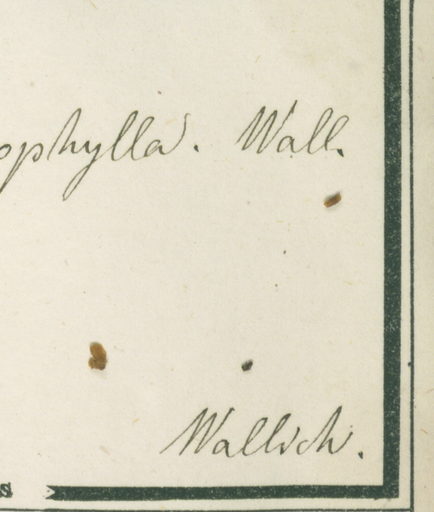 ophylla. Wall.
Wallich.
s